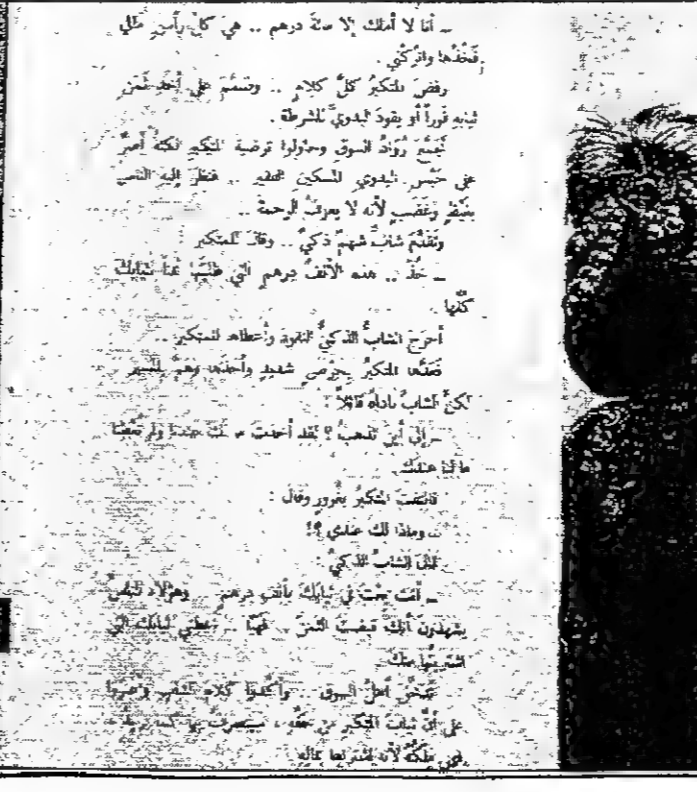 ــ أنا لا أملك إلا مئة درهم .. هي كل رأس مالي
فخذها واتركني .
رفض المتكبر كل كلام .. وصمم على أخذ ثمن
ثيابه فوراً أو يقود البدوي للشرطة .
تجمع رواد السوق وحاولوا ترضية المتكبر لكنه أصر
على حبس البدوي المسكين الفقير .. فنظر إليه الناس
بغيظ وغضب لأنه لا يعرف الرحمة ..
وتقدم شاب شهم ذكي .. وقال للمتكبر :
ــ خذ .. هذه الألف درهم التي طلبتها ثمناً لثيابك
كلها .
أخرج الشاب الذكي النقود وأعطاها للمتكبر ..
فعدها المتكبر بحرص شديد وأخذها وهم بالسير
لكن الشاب ناداه قائلاً :
ــ إلى أين تذهب ؟ لقد أخذت ما لك عندنا ولم تعطنا
ما لنا عندك .
فالتفت المتكبر بغرور وقال :
ــ وماذا لك عندي ؟!
قال الشاب الذكي :
ــ أنت بعت لي ثيابك بألف درهم .. وهؤلاء الناس
يشهدون أنك قبضت الثمن .. فهيا .. أعطني ثيابك التي
اشتريتها منك
أهل السوق .. وأيدوا كلام الشاب
على أن ثياب المتكبر من حقه ، يتصرف بها كما
فهي ملكه لأنه اشتراها بماله